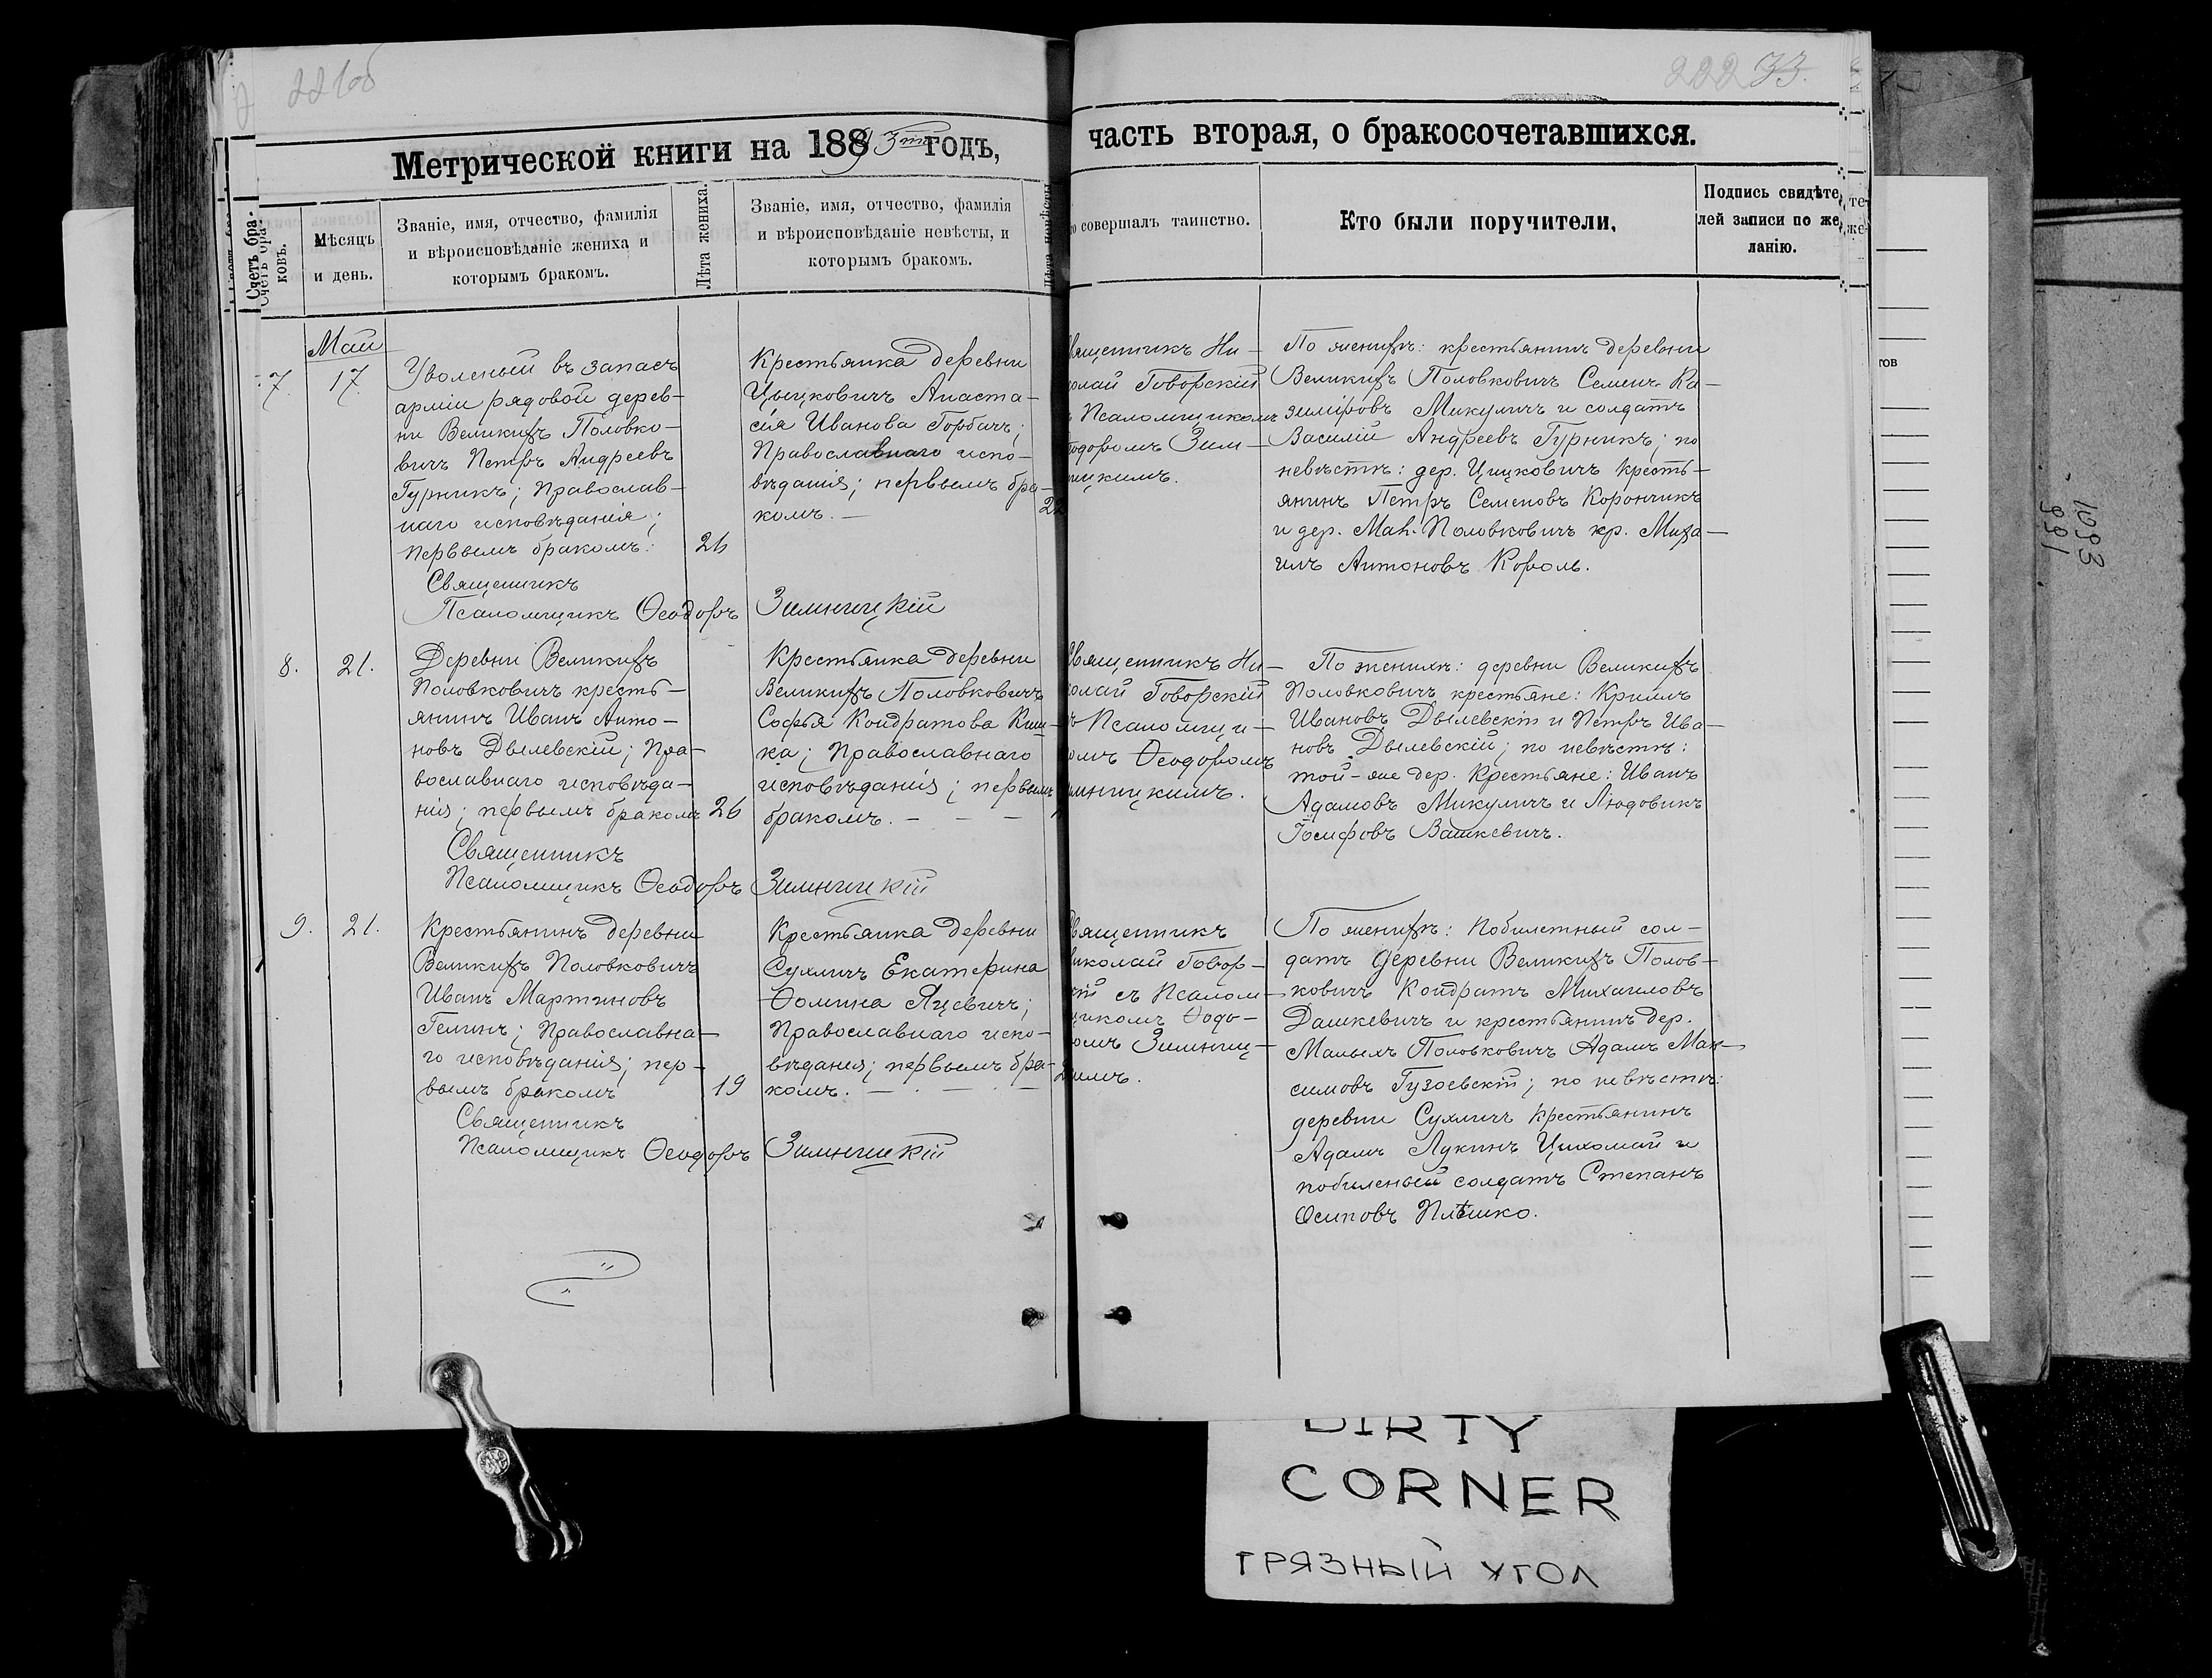 221об
222 33.
Метрической книги на 1893й годъ,
часть вторая, о бракосочетавшихся.
Счетъ бра-
ковъ.
Мѣсяцъ
и день.
Званіе, имя, отчество, фамилія
и вѣроисповѣданіе жениха и
которымъ бракомъ.
Лѣта жениха.
Званіе, имя, отчество, фамилія
и вѣроисповѣданіе невѣсты, и
которымъ бракомъ.
совершалъ таинство.
Кто были поручители,
Подпись свидѣте
лей записи по же
ланію.
Май
7. 17.
Уволеный въ запасъ
арміи рядовой дерев-
ни Великихъ Половко-
вичъ Петръ Андреевъ
Гурникъ; Православ-
наго исповѣданія;
первымъ бракомъ. 26
Священникъ
Псаломщикъ Ѳеодоръ Зимницкій
Крестьянка деревни
Цыцковичъ Анаста-
сія Иванова Горбачъ;
Православнаго испо-
вѣданія; первымъ бра-
комъ. — 22
вященникъ Ни-
олай Говорскій
ъ Псаломщикомъ
ѳодоромъ Зим-
ицкимъ.
По женихѣ: крестьянинъ деревни
Великихъ Половковичъ Семенъ Ка-
зиміровъ Микуличъ и солдатъ
Василій Андреевъ Гурникъ; по
невѣстѣ: дер. Цицковичъ кресть-
янинъ Петръ Семеновъ Корончикъ
и дер. Мал. Половковичъ кр. Миха-
илъ Антоновъ Король.
8. 21.
Деревни Великихъ
Половковичъ кресть-
янинъ Иванъ Анто-
новъ Дылевскій; Пра-
вославнаго исповѣда-
нія; первымъ бракомъ 26
Священникъ
Псаломщикъ Ѳеодоръ Зимницкій
Крестьянка деревни
Великихъ Половковичъ
Софья Кондратова Киш-
ка; Православнаго
исповѣданія; первымъ
бракомъ. — — —
Священникъ Ни-
олай Говорскій
ъ Псаломщи-
омъ Ѳеодоромъ
имницкимъ.
По женихѣ: деревни Великихъ
Половковичъ крестьяне: Кирилъ
Ивановъ Дылевскій и Петръ Ива-
новъ Дылевскій; по невѣстѣ:
той-же дер. Крестьяне: Иванъ
Адамовъ Микуличъ и Людовикъ
Іосифовъ Вашкевичъ.
9. 21.
Крестьянинъ деревни
Великихъ Половковичъ
Иванъ Мартиновъ
Гелинъ; Православна-
го исповѣданія; пер-
вымъ бракомъ 19
Священникъ
Псаломщикъ Ѳеодоръ Зимницкій
Крестьянка деревни
Сухличъ Екатерина
Ѳомина Яцевичъ;
Православнаго испо-
вѣданія; первымъ бра-
комъ. — — —
вященникъ
иколай Говор-
кій съ Псалом-
щикомъ Ѳодо-
омъ Зимниц-
имъ.
По женихѣ: Побилетный сол-
датъ деревни Великихъ Полов-
ковичъ Кондратъ Михаиловъ
Дашкевичъ и крестьянинъ дер.
Малыхъ Половковичъ Адамъ Мак-
симовъ Гузоевскій; по невѣстѣ:
деревни Сухличъ крестьянинъ
Адамъ Лукинъ Цихомай и
побиленый солдатъ Степанъ
Осиповъ Плѣшко.
1093
991
DIRTY
CORNER
ГРЯЗНЫЙ УГОЛ